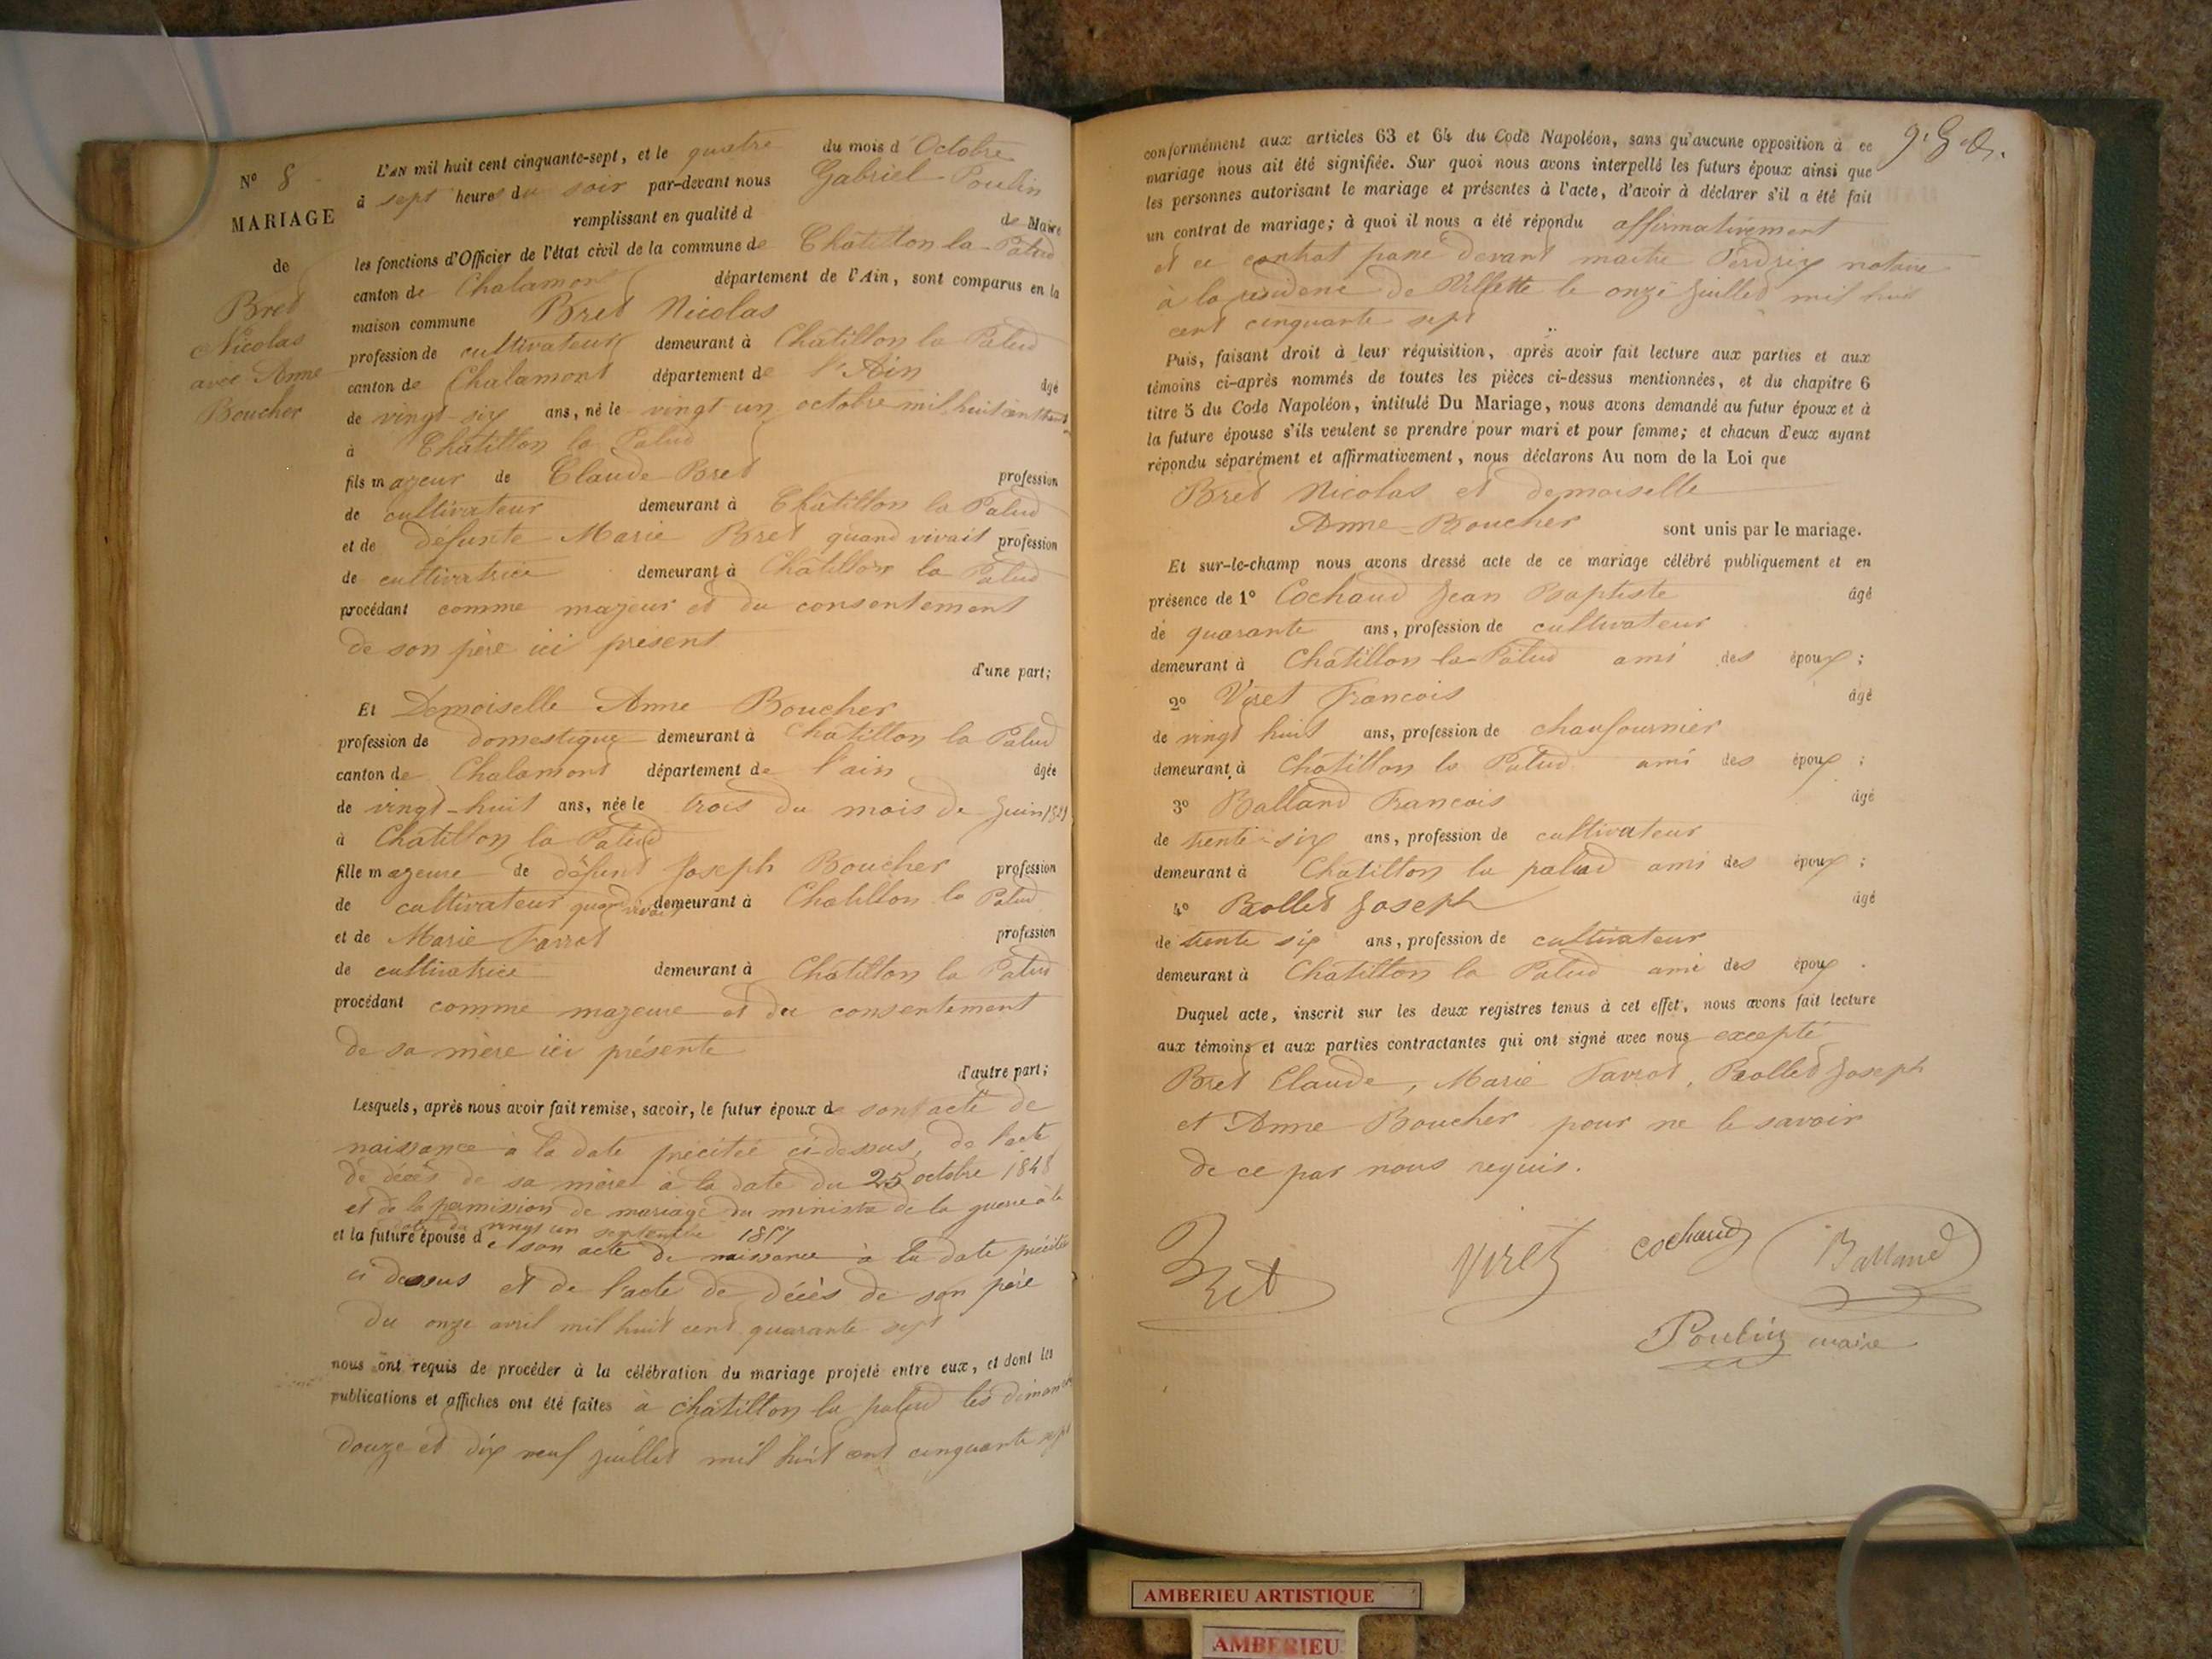 N° 8
MARIAGE
de
Bret
Nicolas
avec Anne
Boucher
L'AN mil huit cent cinquante-sept, et le quatre du mois d'Octobre
à sept heures du soir par-devant nous Gabriel Poulin
remplissant en qualité d de Maire
les fonctions d'Officier de l'état civil de la commune de Châtillon la Palud
canton de Chalamont département de l'Ain, sont comparus en la
maison commune Bret Nicolas
profession de cultivateur demeurant à Châtillon la Palud
canton de Chalamont département de l'Ain âgé
de vingt-six ans, né le vingt un octobre mil huit cent trente
à Châtillon la Palud
fils majeur de Claude Bret profession
de cultivateur demeurant à Châtillon la Palud
et de défunte Marie Bret quand vivait profession
de cultivatrice demeurant à Châtillon la Palud
procédant comme majeur et du consentement
de son père ici présent
d'une part;
Et Demoiselle Anne Boucher
profession de domestique demeurant à Châtillon la Palud
canton de Chalamont département de l'ain âgée
de vingt-huit ans, née le trois du mois de Juin 1829
à Chatillon la Palud
fille majeure de défunt Joseph Boucher profession
de cultivateur quand vivait demeurant à Chatillon la Palud
et de Marie Favrot profession
de cultivatrice demeurant à Chatillon la Palud
procédant comme majeure et du consentement
de sa mère ici présente
d'autre part;
Lesquels, après nous avoir fait remise, savoir, le futur époux de son acte de
naissance à la date précitée ci-dessus, de l'acte
de décès de sa mère à la date du 25 octobre 1848
et de la permission de mariage du ministre de la guerre à la
date du vingt un septembre 1857
et la future épouse de son acte de naissance à la date précitée
ci dessus et de l'acte de décès de son père
du onze avril mil huit cent quarante sept
nous ont requis de procéder à la célébration du mariage projeté entre eux, et dont les
publications et affiches ont été faites à châtillon la palud les dimanches
douze et dix neuf juillet mil huit cent cinquante sept
conformément aux articles 63 et 64 du Code Napoléon, sans qu'aucune opposition à ce
mariage nous ait été signifiée. Sur quoi nous avons interpellé les futurs époux ainsi que
les personnes autorisant le mariage et présentes à l'acte, d'avoir à déclarer s'il a été fait
un contrat de mariage; à quoi il nous a été répondu affirmativement
et ce contrat passé devant maitre Perdrix notaire
à la residence de Villette le onze juillet mil huit
cent cinquante sept
Puis, faisant droit à leur réquisition, après avoir fait lecture aux parties et aux
témoins ci-après nommés de toutes les pièces ci-dessus mentionnées, et du chapitre 6
titre 5 du Code Napoléon, intitulé Du Mariage, nous avons demandé au futur époux et à
la future épouse s'ils veulent se prendre pour mari et pour femme; et chacun d'eux ayant
répondu séparément et affirmativement, nous déclarons Au nom de la Loi que
Bret Nicolas et demoiselle
Anne Boucher sont unis par le mariage.
Et sur-le-champ nous avons dressé acte de ce mariage célébré publiquement et en
présence de 1° Cochaud Jean Baptiste âgé
de quarante ans, profession de cultivateur
demeurant à Chatillon la Palud ami des époux;
2° Viret Francois âgé
de vingt huit ans, profession de chaufournier
demeurant à Chatillon la Palud ami des époux;
3° Balland Francois âgé
de trente-six ans, profession de cultivateur
demeurant à Chatillon la palud ami des époux;
4° Rollet Joseph âgé
de trente six ans, profession de cultivateur
demeurant à Chatillon la Palud ami des époux.
Duquel acte, inscrit sur les deux registres tenus à cet effet, nous avons fait lecture
aux témoins et aux parties contractantes qui ont signé avec nous excepté
Bret Claude, Marie Favrot, Rollet Joseph
et Anne Boucher pour ne le savoir
de ce par nous requis.
Bret Viret Cochaud Balland
Poulin maire
AMBERIEU ARTISTIQUE
AMBERIEU